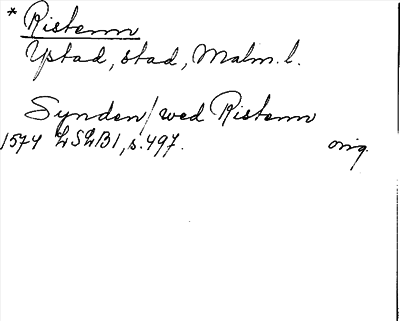 * Ristenn
Ystad, stad, Malm. l.
Synden/wed Ristenn
1574 LSLB1, s. 497. orig.